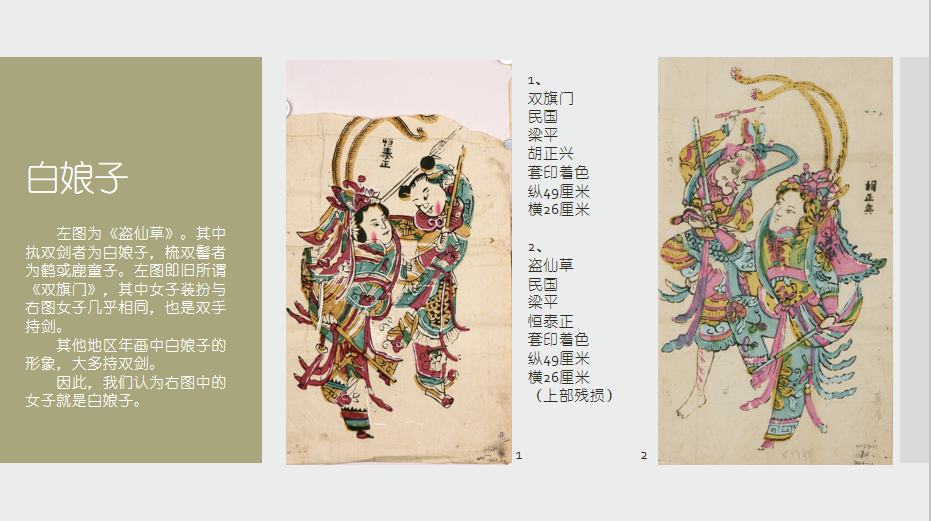 白娘子
左图为《盗仙草》。其中
执双剑者为白娘子，梳双髻者
为鹤或鹿童子。左图即旧所谓
《双旗门》，其中女子装扮与
右图女子几乎相同，也是双手
持剑。
其他地区年画中白娘子的
形象，大多持双剑。
因此，我们认为右图中的
女子就是白娘子。
恒泰正
1
1、
双旗门
民国
梁平
胡正兴
套印着色
纵49厘米
横26厘米
2、
盗仙草
民国
梁平
恒泰正
套印着色
纵49厘米
横26厘米
（上部残损）
2
胡正兴